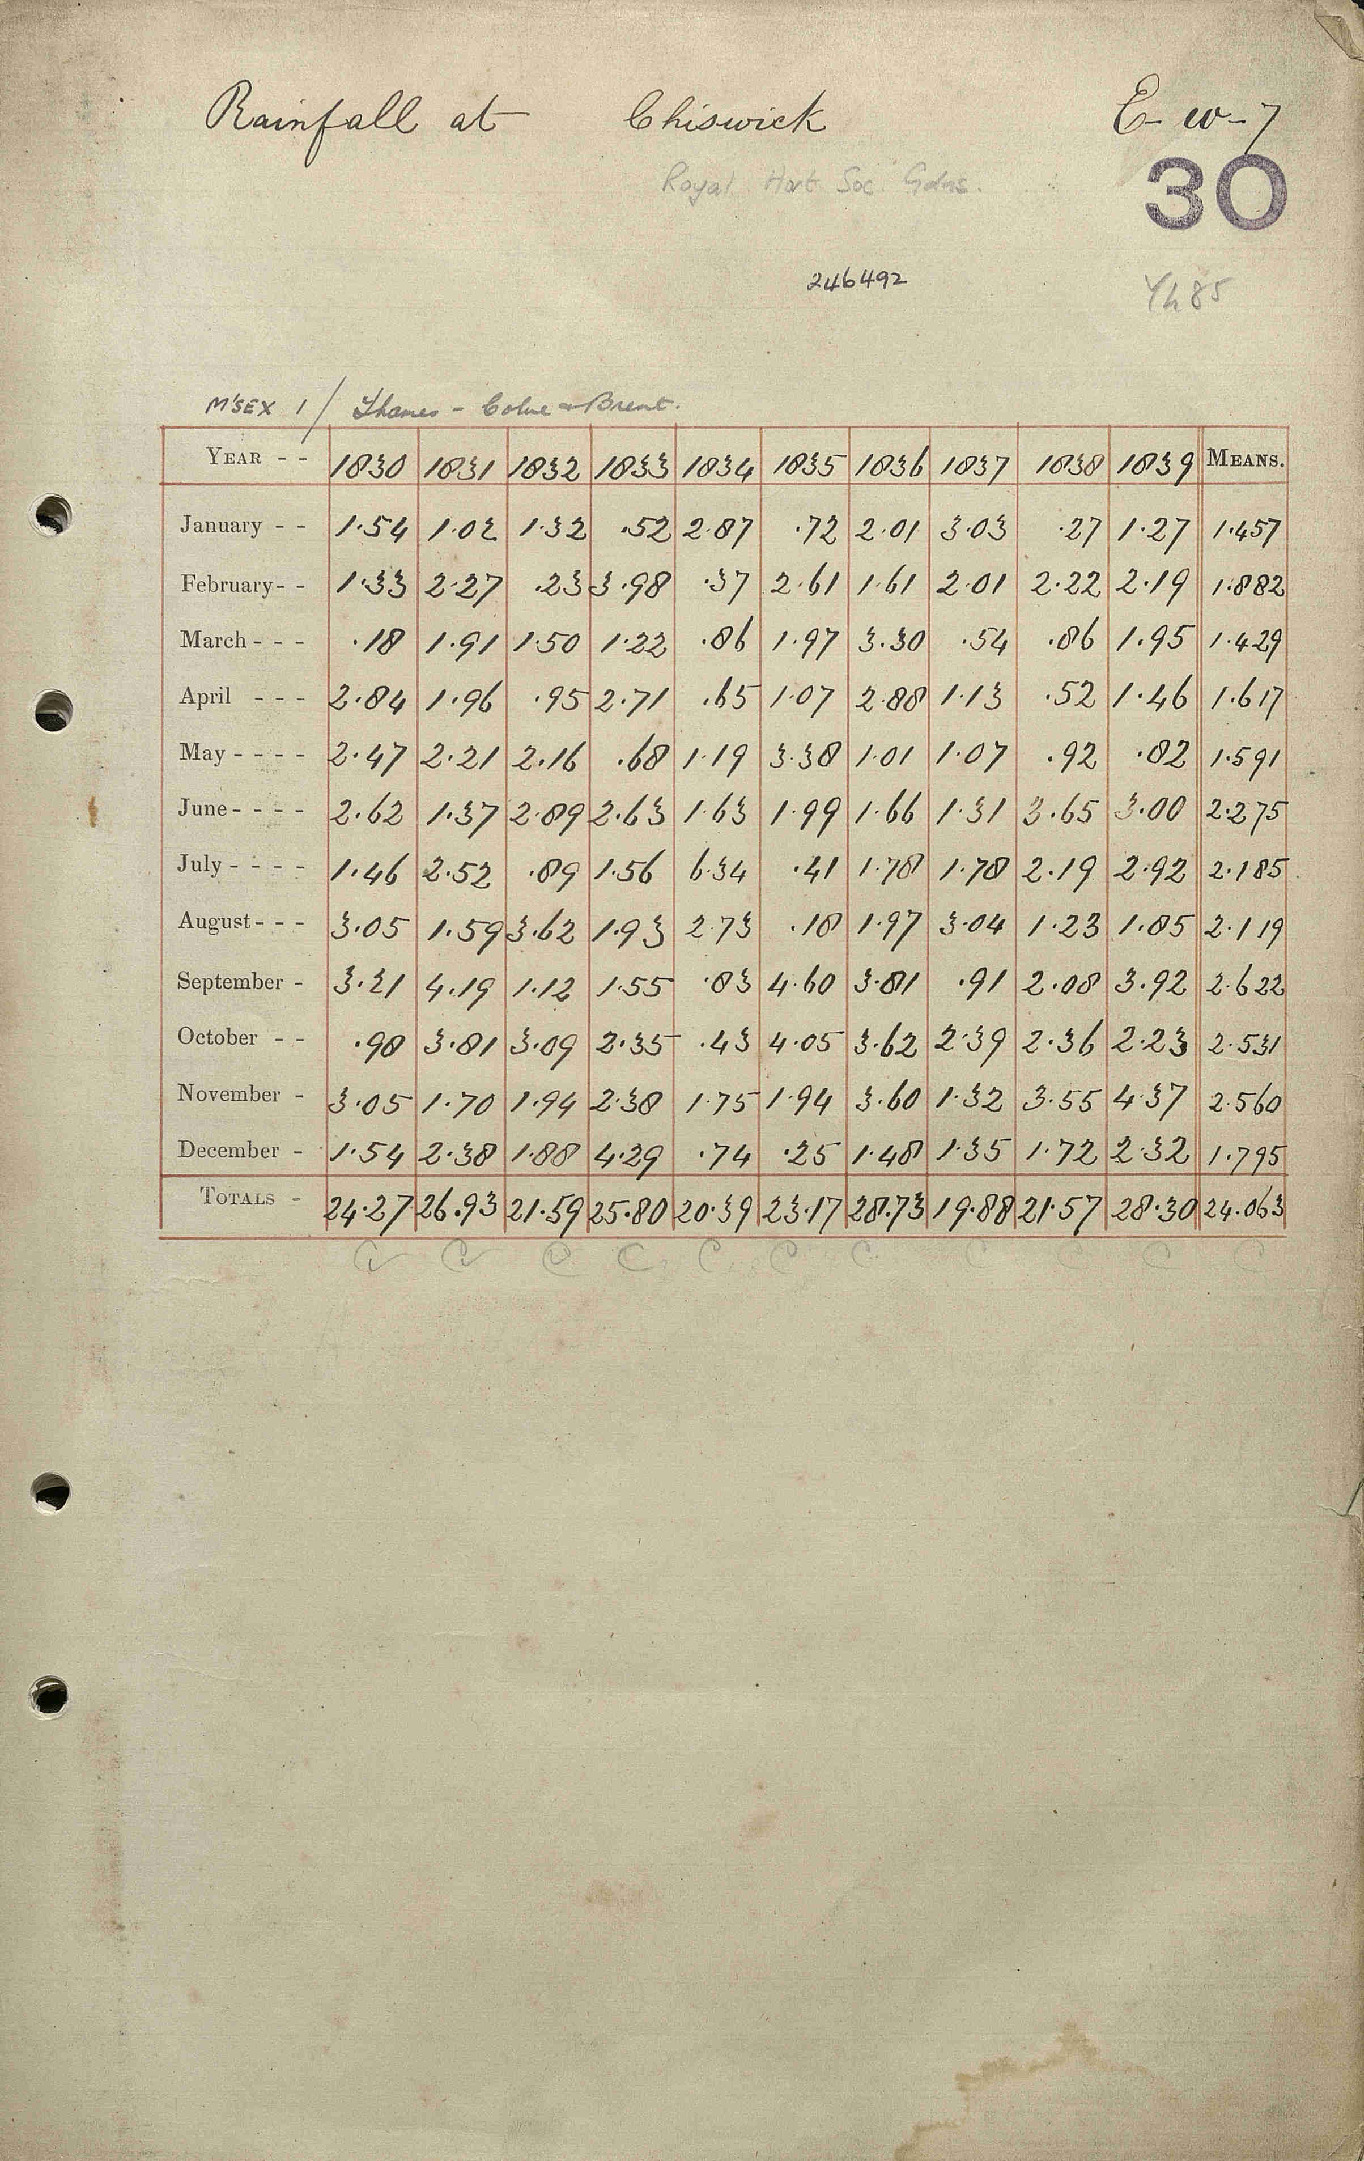 Rainfall at Chiswick E- w-7
Royal Hort Soc Gdns. 30
246492 Yh 85
M'SEX 1 / Thames - Colne & Brent.
YEAR - - 1830 1831 1832 1833 1834 1835 1836 1837 1838 1839 MEANS.
January - - 1.54 1.02 1.32 .52 2.87 .72 2.01 3.03 .27 1.27 1.457
February - - 1.33 2.27 .23 3.98 .37 2.61 1.61 2.01 2.22 2.19 1.882
March - - - .18 1.91 1.50 1.22 .86 1.97 3.30 .54 .86 1.95 1.429
April - - - 2.84 1.96 .95 2.71 .65 1.07 2.88 1.13 .52 1.46 1.617
May - - - - 2.47 2.21 2.16 .68 1.19 3.38 1.01 1.07 .92 .82 1.591
June - - - - 2.62 1.37 2.89 2.63 1.63 1.99 1.66 1.31 3.65 3.00 2.275
July - - - - 1.46 2.52 .89 1.56 6.34 .41 1.78 1.78 2.19 2.92 2.185
August - - - 3.05 1.59 3.62 1.93 2.73 .18 1.97 3.04 1.23 1.85 2.119
September - 3.21 4.19 1.12 1.55 .83 4.60 3.81 .91 2.08 3.92 2.622
October - - .98 3.81 3.09 2.35 .43 4.05 3.62 2.39 2.36 2.23 2.531
November - 3.05 1.70 1.94 2.38 1.75 1.94 3.60 1.32 3.55 4.37 2.560
December - 1.54 2.38 1.88 4.29 .74 .25 1.48 1.35 1.72 2.32 1.795
TOTALS - 24.27 26.93 21.59 25.80 20.39 23.17 28.73 19.88 21.57 28.30 24.063
C C C C C C C C C C C